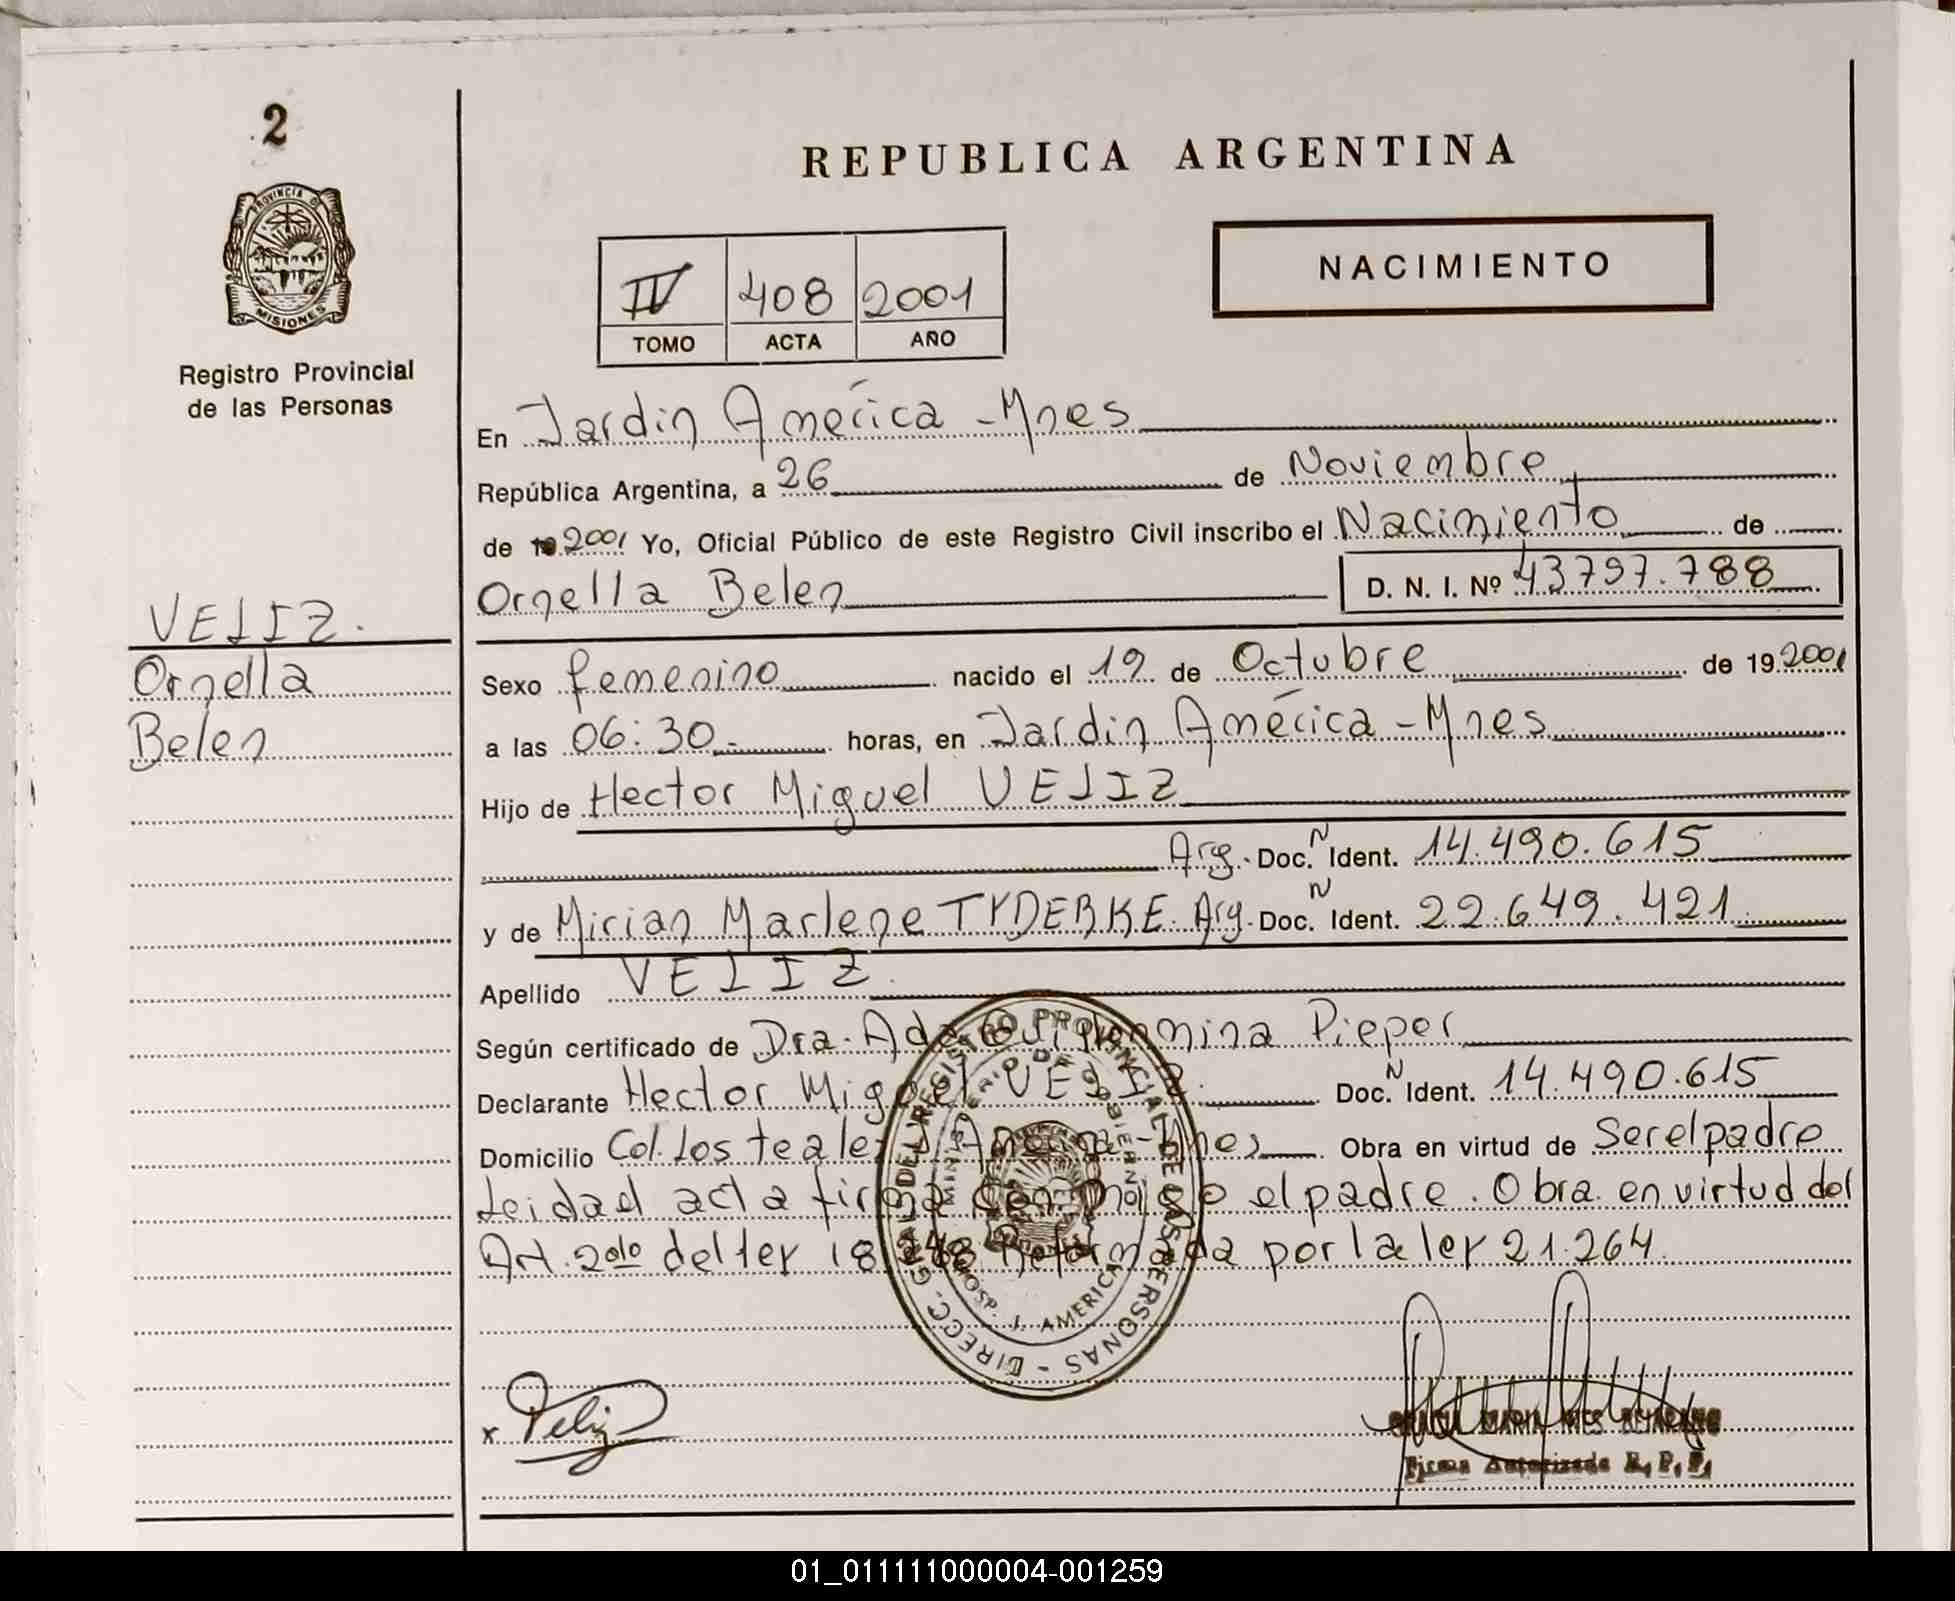 2
PROVINCIA D
MISIONES
Registro Provincial
de las Personas
VELIZ.
Ornella
Belen
REPUBLICA ARGENTINA
NACIMIENTO
IV 408 2001
TOMO ACTA AÑO
En Jardin América - Mnes
República Argentina, a 26 de Noviembre
de 19 2001 Yo, Oficial Público de este Registro Civil inscribo el Nacimiento de
Ornella Belen D. N. I. Nº 43797.788
Sexo femenino nacido el 19 de Octubre de 19 2001
a las 06:30.- horas, en Jardin América - Mnes
Hijo de Hector Miguel VELIZ
Arg. Doc. N Ident. 14.490.615
y de Mirian Marlene TYDERKE. Arg. Doc. N Ident. 22.649.421
Apellido VELIZ
Según certificado de Dra. Ada Guillermina Pieper
Declarante Hector Miguel VELIZ Doc. N Ident. 14.490.615
Domicilio Col. Los teales J. América - Mnes Obra en virtud de Ser el padre
Leida el acta firma conmigo el padre. Obra en virtud del
Art. 2do del ley 18.248 Reformada por la ley 21.264.
DIRECC. GRAL. DEL REGISTRO PROVINCIAL DE LAS PERSONAS
MINISTERIO DE GOBIERNO
HOSP. J. AMERICA
x Veliz
MARIA INES
Firma Autorizada R. P. P.
01_011111000004-001259